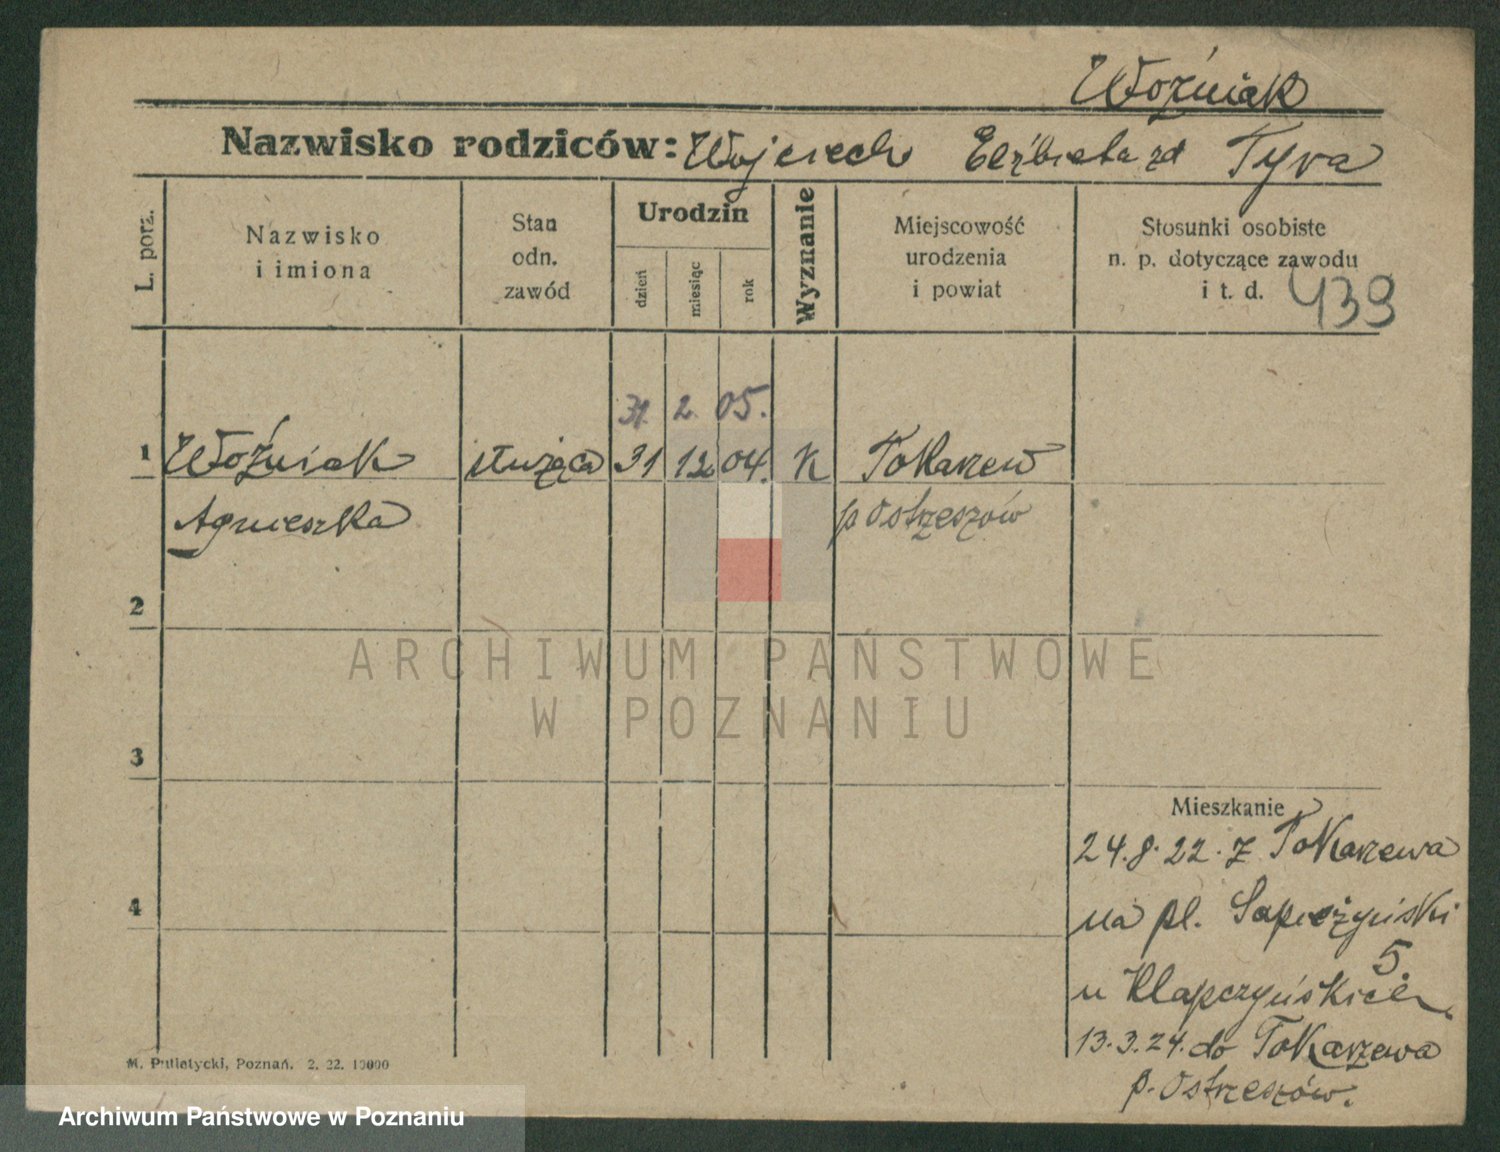 Woźniak
Nazwisko rodziców: Wojciech Elżbieta zd Tyra
L. porz.
Nazwisko
i imiona
Stan
odn.
zawód
Urodzin
dzień
miesiąc
rok
Wyznanie
Miejscowość
urodzenia
i powiat
Stosunki osobiste
n. p. dotyczące zawodu
i t. d. 439
31. 2. 05.
1 Woźniak służąca 31 12. 04. K Tokarzew
Agnieszka p Ostrzeszów
2
ARCHIWUM PAŃSTWOWE
W POZNANIU
3
Mieszkanie
24.8.22. z Tokarzewa
4
na pl. Sapieżyński
5.
u Klapczyńskich
13.3.24. do Tokarzewa
p. Ostrzeszów.
M. Putiatycki, Poznań. 2. 22. 10000
Archiwum Państwowe w Poznaniu